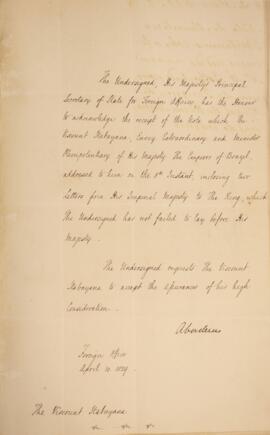 The Undersigned, His Majesty's Principal
Secretary of State for Foreign Affairs, has the Honour
to acknowledge the receipt of the Note which the
Viscount Itabayana, Envoy Extraordinary and Minister
Plenipotentiary of His Majesty The Emperor of Brazil
addressed to him on the 8th Instant, inclosing two
Letters from His Imperial Majesty to The King, which
The Undersigned has not failed to lay before His
Majesty.
The Undersigned requests The Viscount
Itabayana to accept the assurances of his high
Consideration.
Aberdeen
Foreign Office
April 10. 1829.
The Viscount Itabayana